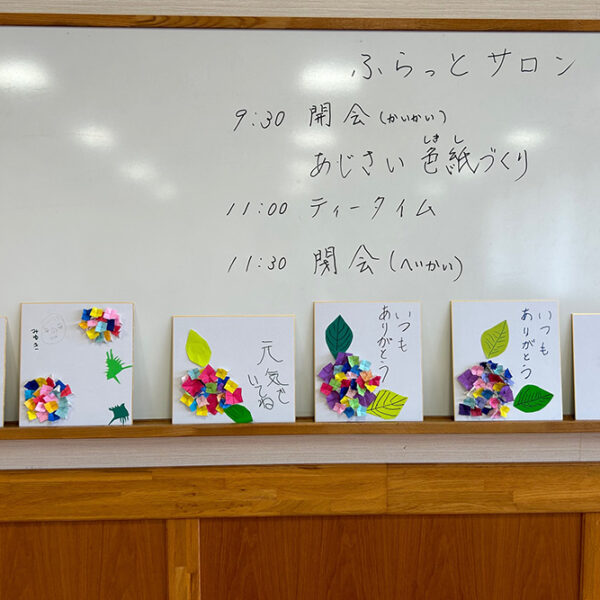 ふらっとサロン
9:30 開会(かいかい)
しき し
あじさい 色紙づくり
11:00 ティータイム
11:30 閉会(へいかい)
元気で
いてね
いつも
ありがとう
いつも
ありがとう